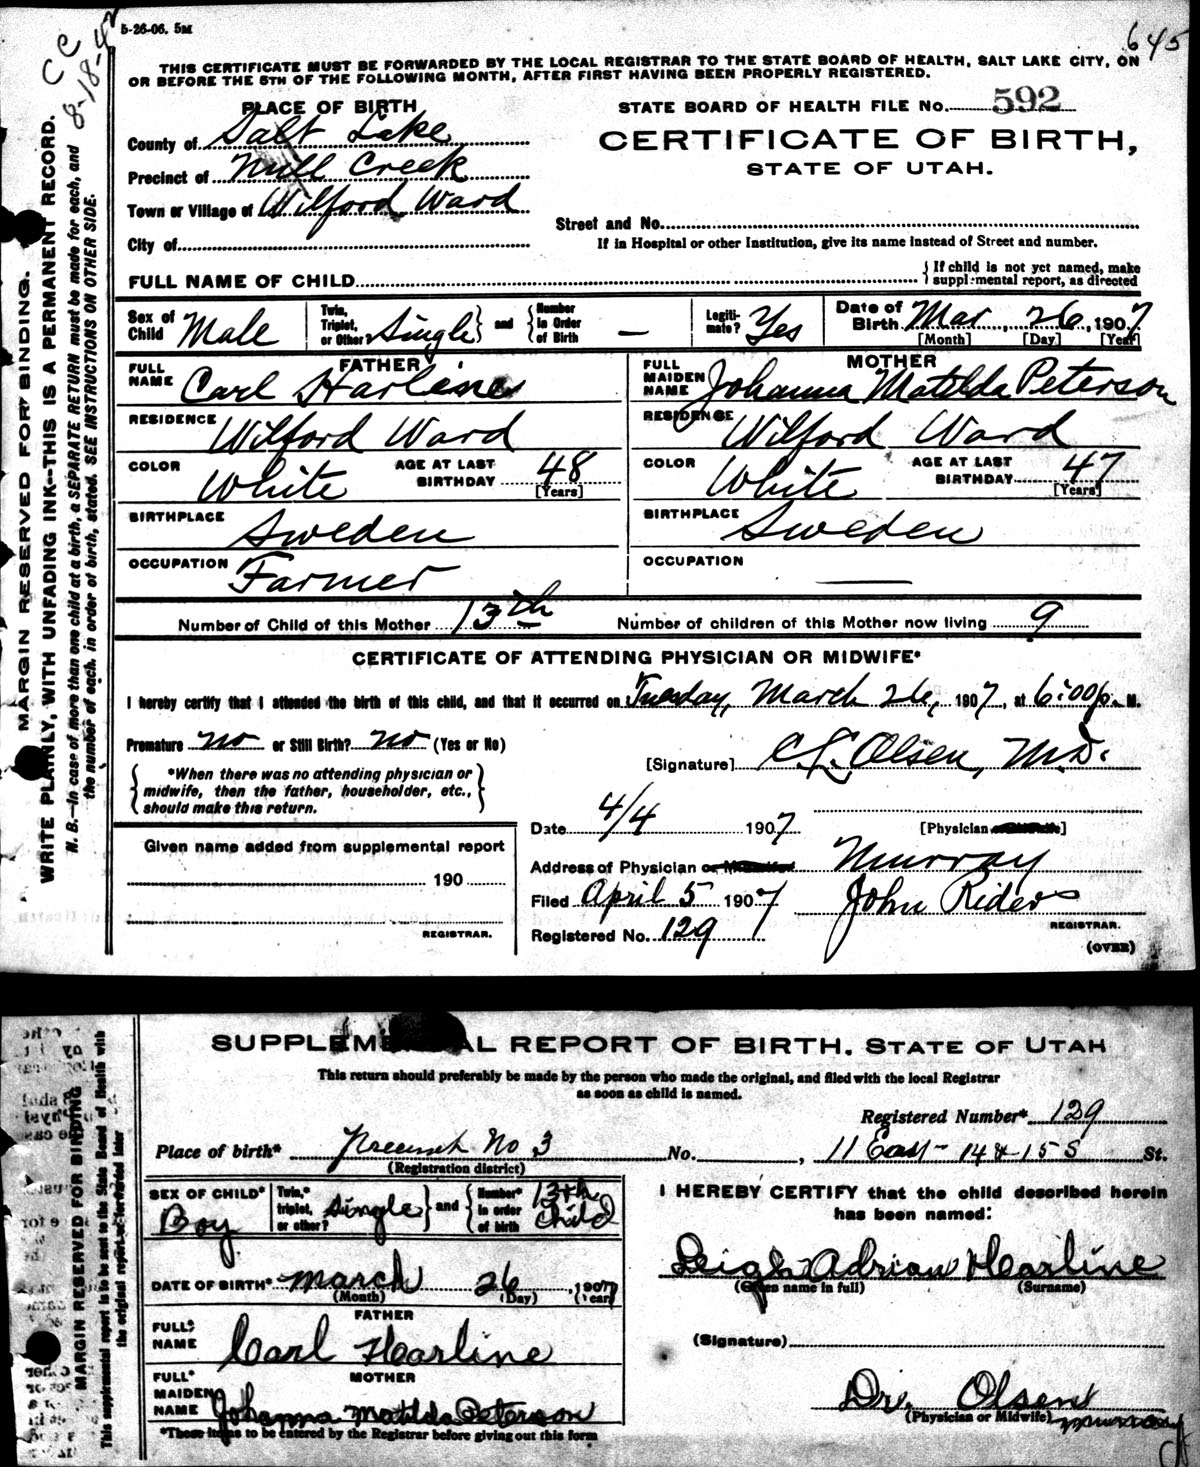 5-26-06. 5M
645
C C
8-18-42
THIS CERTIFICATE MUST BE FORWARDED BY THE LOCAL REGISTRAR TO THE STATE BOARD OF HEALTH, SALT LAKE CITY, ON
OR BEFORE THE 5TH OF THE FOLLOWING MONTH, AFTER FIRST HAVING BEEN PROPERLY REGISTERED.
PLACE OF BIRTH
STATE BOARD OF HEALTH FILE No. 592
County of Salt Lake
CERTIFICATE OF BIRTH,
STATE OF UTAH.
Precinct of Mill Creek
Town or Village of Wilford Ward
Street and No.
City of
If in Hospital or other Institution, give its name instead of Street and number.
FULL NAME OF CHILD
{ If child is not yet named, make
supplemental report, as directed
Sex of Child Male
Twin, Triplet, or Other Single } and { Number in Order of Birth —
Legitimate? Yes
Date of Birth Mar, 26, 1907
[Month] [Day] [Year]
FATHER
FULL NAME Carl Harline
MOTHER
FULL MAIDEN NAME Johanna Matilda Peterson
RESIDENCE Wilford Ward
RESIDENCE Wilford Ward
COLOR White AGE AT LAST BIRTHDAY 48 [Years]
COLOR White AGE AT LAST BIRTHDAY 47 [Years]
BIRTHPLACE Sweden
BIRTHPLACE Sweden
OCCUPATION Farmer
OCCUPATION —
Number of Child of this Mother 13th Number of children of this Mother now living 9
CERTIFICATE OF ATTENDING PHYSICIAN OR MIDWIFE*
I hereby certify that I attended the birth of this child, and that it occurred on Tuesday, March 26, 1907, at 6:00 p. M.
Premature no or Still Birth? no (Yes or No)
[Signature] C L Olsen, M.D.
{ *When there was no attending physician or
midwife, then the father, householder, etc.,
should make this return. }
Date 4/4 1907 [Physician or Midwife]
Given name added from supplemental report
190
REGISTRAR.
Address of Physician or Midwife Murray
Filed April 5 1907 John Riders
REGISTRAR.
Registered No. 129
(OVER)
MARGIN RESERVED FOR BINDING.
WRITE PLAINLY, WITH UNFADING INK--THIS IS A PERMANENT RECORD.
N. B.—In case of more than one child at a birth, a SEPARATE RETURN must be made for each, and
the number of each, in order of birth, stated. SEE INSTRUCTIONS ON OTHER SIDE.
SUPPLEMENTAL REPORT OF BIRTH. STATE OF UTAH
This return should preferably be made by the person who made the original, and filed with the local Registrar
as soon as child is named.
Registered Number* 129
Place of birth* Precinct No 3 No. , 11 East - 14 & 15 S St.
(Registration district)
SEX OF CHILD* Boy
Twin,* triplet, or other? Single } and { Number* in order of birth 13th child
I HEREBY CERTIFY that the child described herein
has been named:
Leigh Adrian Harline
(Given name in full) (Surname)
DATE OF BIRTH* March 26, 1907
(Month) (Day) (Year)
FATHER
FULL* NAME Carl Harline
(Signature)
MOTHER
FULL* MAIDEN NAME Johanna Matilda Peterson
Dr. Olsen
(Physician or Midwife) Murray
*These items to be entered by the Registrar before giving out this form
MARGIN RESERVED FOR BINDING
This supplemental report is to be sent to the State Board of Health with
the original report of birth or forwarded later